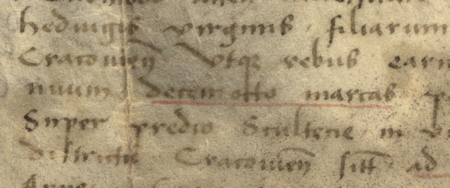 Hedvigis virginis, filiarum
Cracovien̄ Utq; rebus earu
nuum decemocto marcas p
Super predio Scultecie in v
districtu Cracovien̄ sitt̄ ad